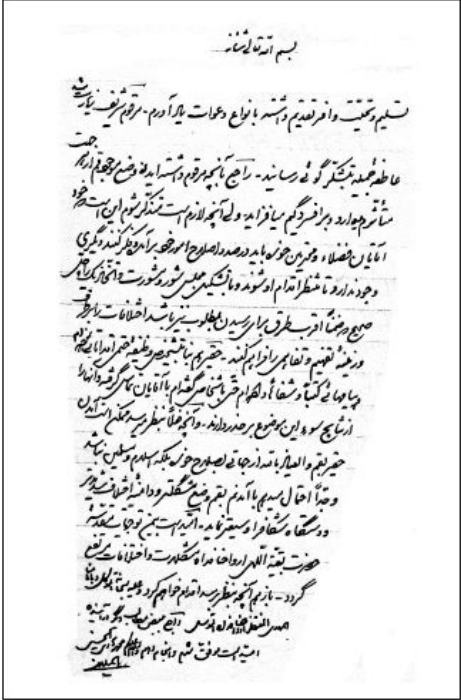 بسم الله تعالی شأنه
تسلیم و تحیّت وافر تقدیم داشته بانواع دعوات یادآورم - مرقوم شریف زیارت شد
عاطفه جمیله تشکر گوئی رسانید - راجع بآنچه مرقوم داشته اید از وضع موجود قم از هر جهت
متأثرم میدارد و بر افسردگیم میافزاید ولی آنچه لازم است متذکر شوم این است خود
آقایان فضلاء و محترمین حوزه باید درصدد اصلاح امور خود برآیند و فکر کنند دیگری
وجود ندارد و تا منتظر اقدام او شوند و با تشکیل مجلس شور و مشورت و اتخاذ یک راه حل
صحیح و ضمناً اقرب طرق برای رسیدن بمطلوب نیز باشد اختلافات را برطرف
و زمینه تفهیم و تفاهمی را فراهم کنند - حقیر هم بنا بتشخیص وظیفه حتمی اقداماتی کرده‌ام
و پیامهائی کتباً و شفاهاً داده‌ام حتی با اشخاصی گفته‌ام با آقایان تماس گرفته و آنها را
از نتایج سوء این موضوع برحذر دارند - و آنچه فعلاً بنظر میرسد ممکن است آمدن
حقیر بقم والعیاذ بالله از جهاتی بصلاح حوزه بلکه اسلام و مسلمین نباشد
و جداً احتمال میدهم با آمدنم بقم وضع مشکلتر و دامنه اختلاف شدیدتر
و دستگاه شکاف را وسیعتر نماید - امید است بیمن توجهات مقدسه
حضرت بقیة اللهی ارواحنا فداه مشکلات و اختلافات مرتفع
گردد - باز هم آنچه بنظر رسد اقدام خواهم کرد و علیه تعالی التوکل وبه
امید است موفق شوم و انجام دهم والسلام علیکم